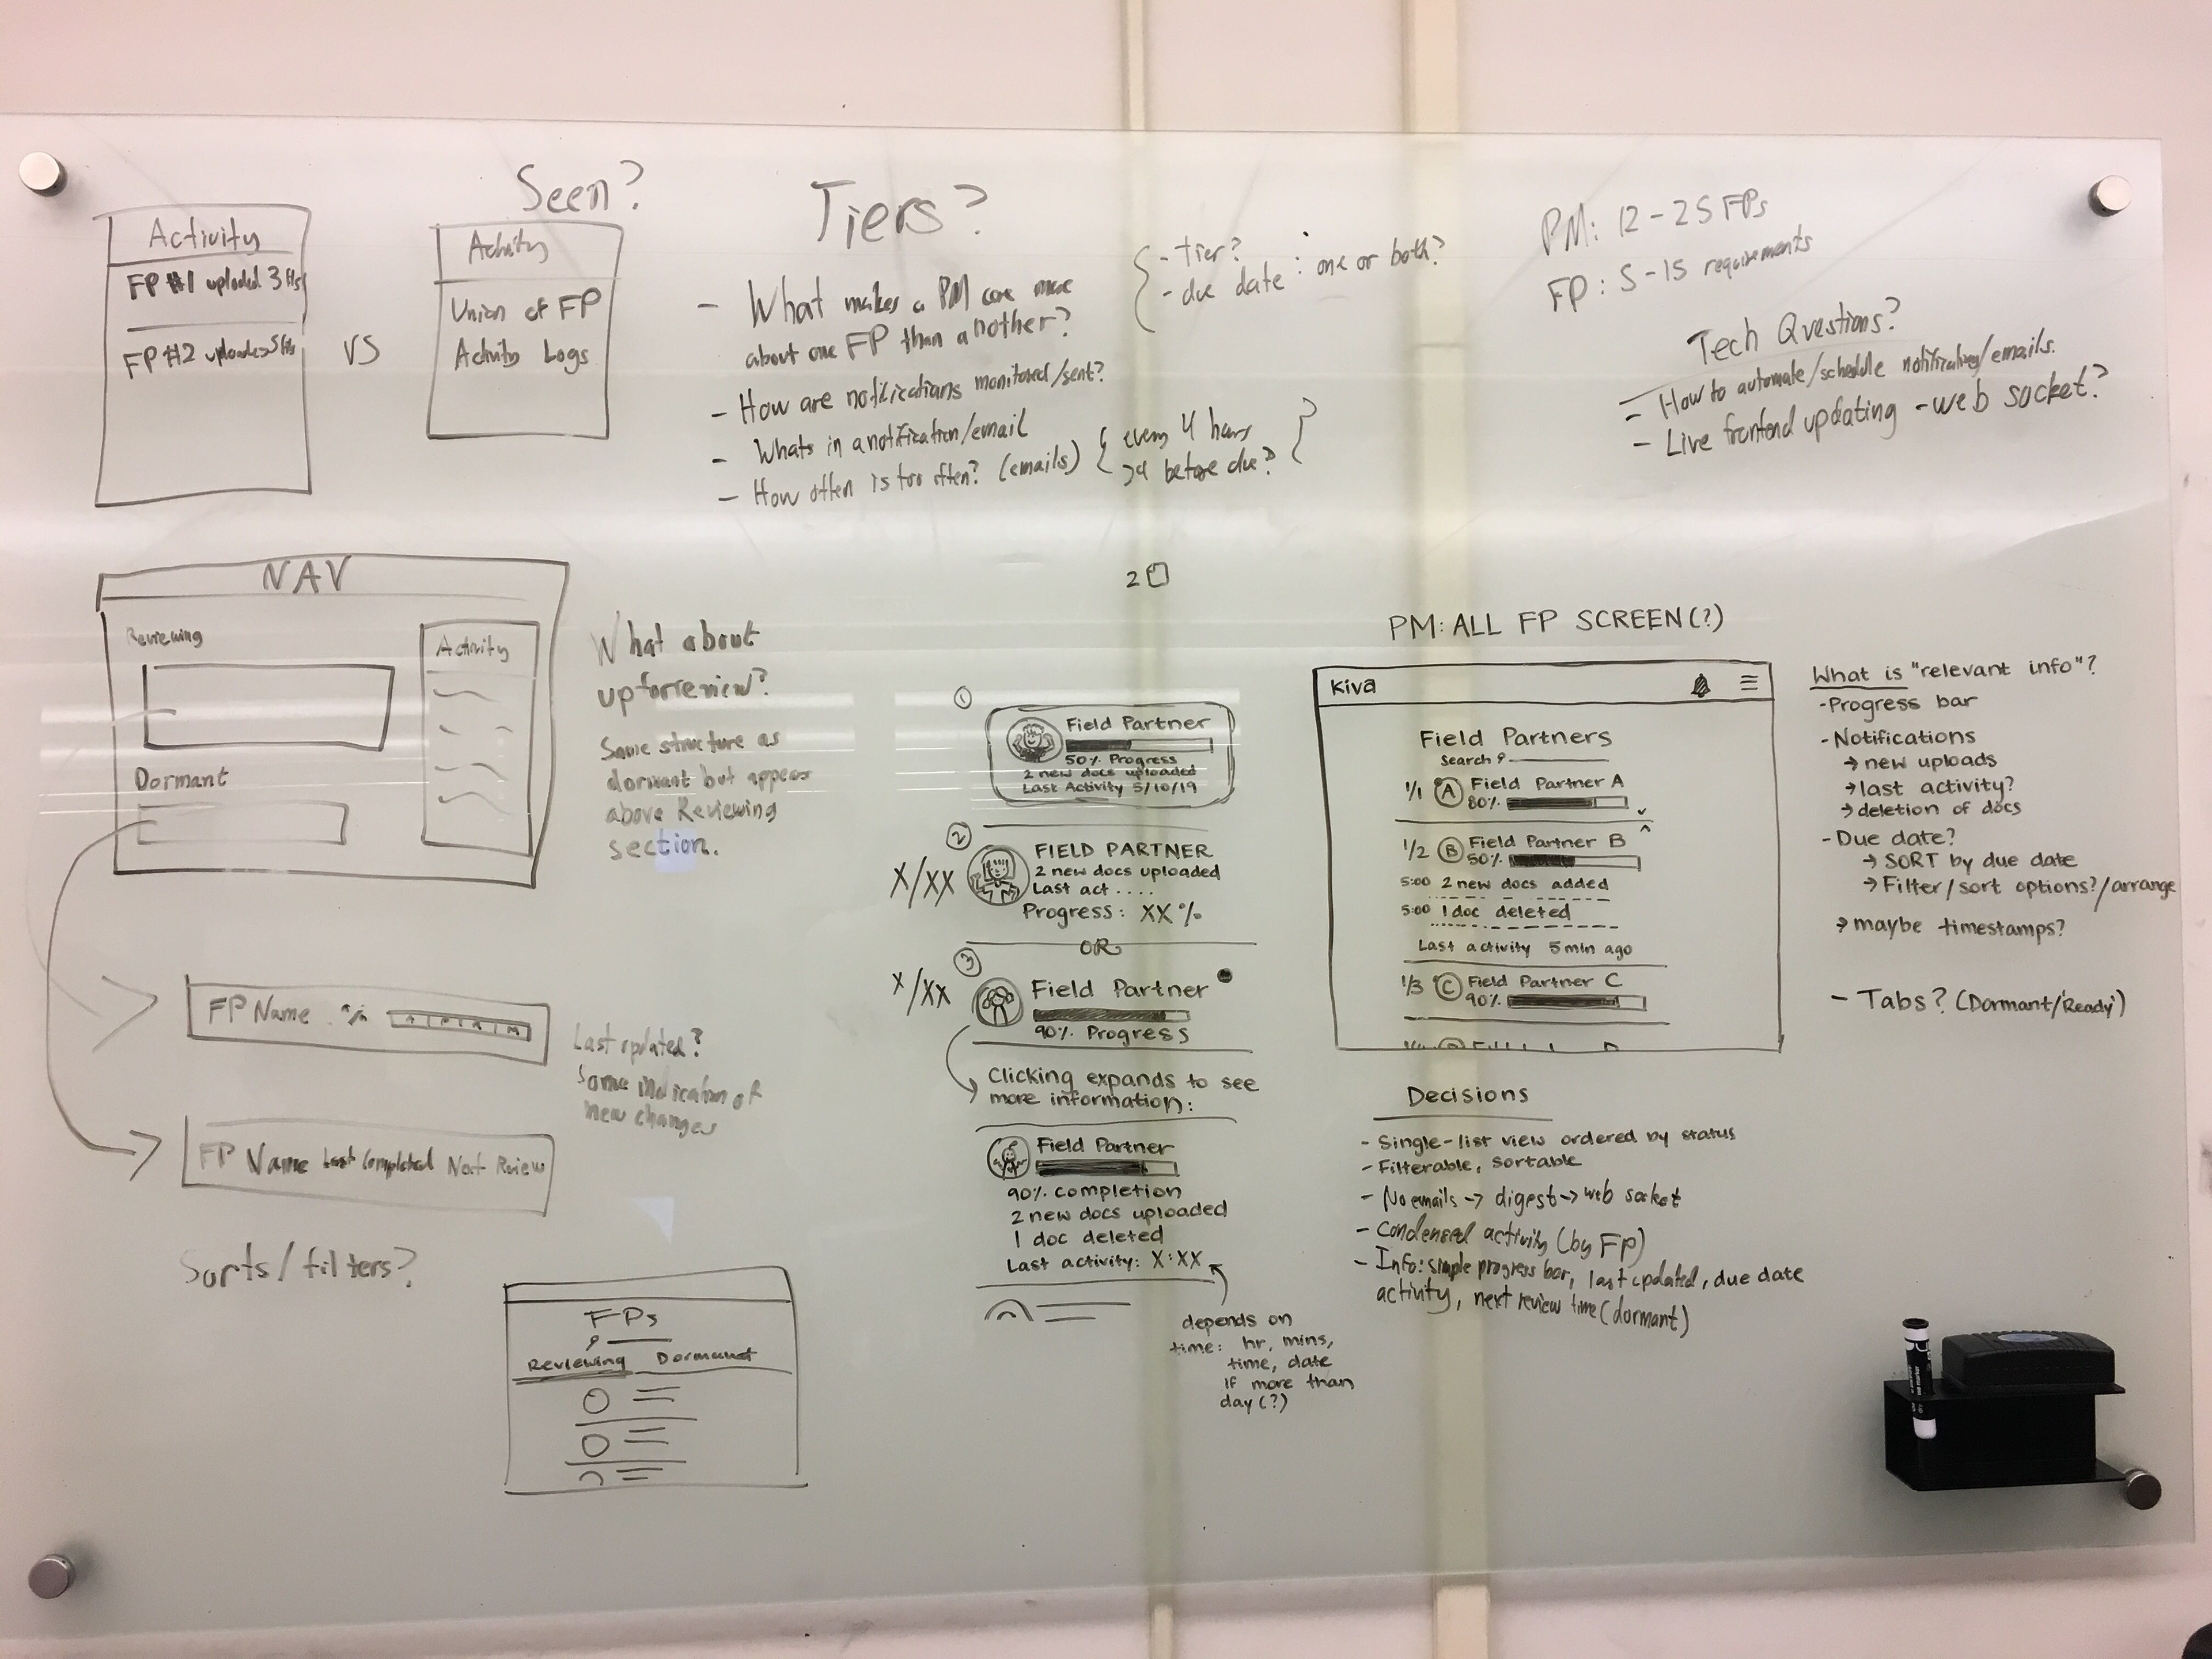 Activity
FP #1 uploaded 3
FP #2
VS
Seen?
Activity
Union of FP
Activity Logs
Tiers?
- What makes a PM care more
about one FP than another?
- How are notifications monitored/sent?
- Whats in a notification/email
- How often is too often? (emails)
{ every 4 hours
before due? }
{ - tier?
- due date : one or both?
PM: 12-25 FPs
FP: 5-15 requirements
Tech Questions?
- How to automate/schedule notifications/emails.
- Live frontend updating - web socket?
NAV
Reviewing
Dormant
Activity
What about
up for review?
Same structure as
dormant but appears
above Reviewing
section.
FP Name %
Last updated?
Some indication of
new changes
FP Name Last Completed Next Review
Sorts/filters?
FPs
Reviewing Dormant
2
1
Field Partner
50% Progress
2 new docs uploaded
Last Activity 5/10/19
2
X/XX
FIELD PARTNER
2 new docs uploaded
Last act ....
Progress: XX%
OR
3
X/XX
Field Partner
90% Progress
Clicking expands to see
more information:
Field Partner
90% completion
2 new docs uploaded
1 doc deleted
Last activity: X:XX
depends on
time: hr, mins,
time, date
if more than
day(?)
PM: ALL FP SCREEN(?)
Kiva
Field Partners
Search
1/1 A Field Partner A
80%
1/2 B Field Partner B
50%
5:00 2 new docs added
5:00 1 doc deleted
Last activity 5 min ago
1/3 C Field Partner C
90%
What is "relevant info"?
- Progress bar
- Notifications
→ new uploads
→ last activity?
→ deletion of docs
- Due date?
→ SORT by due date
→ Filter/sort options?/arrange
→ maybe timestamps?
- Tabs? (Dormant/'Ready')
Decisions
- Single-list view ordered by status
- Filterable, sortable
- No emails → digest → web socket
- Condensed activity (by FP)
- Info: simple progress bar, last updated, due date
activity, next review time (dormant)